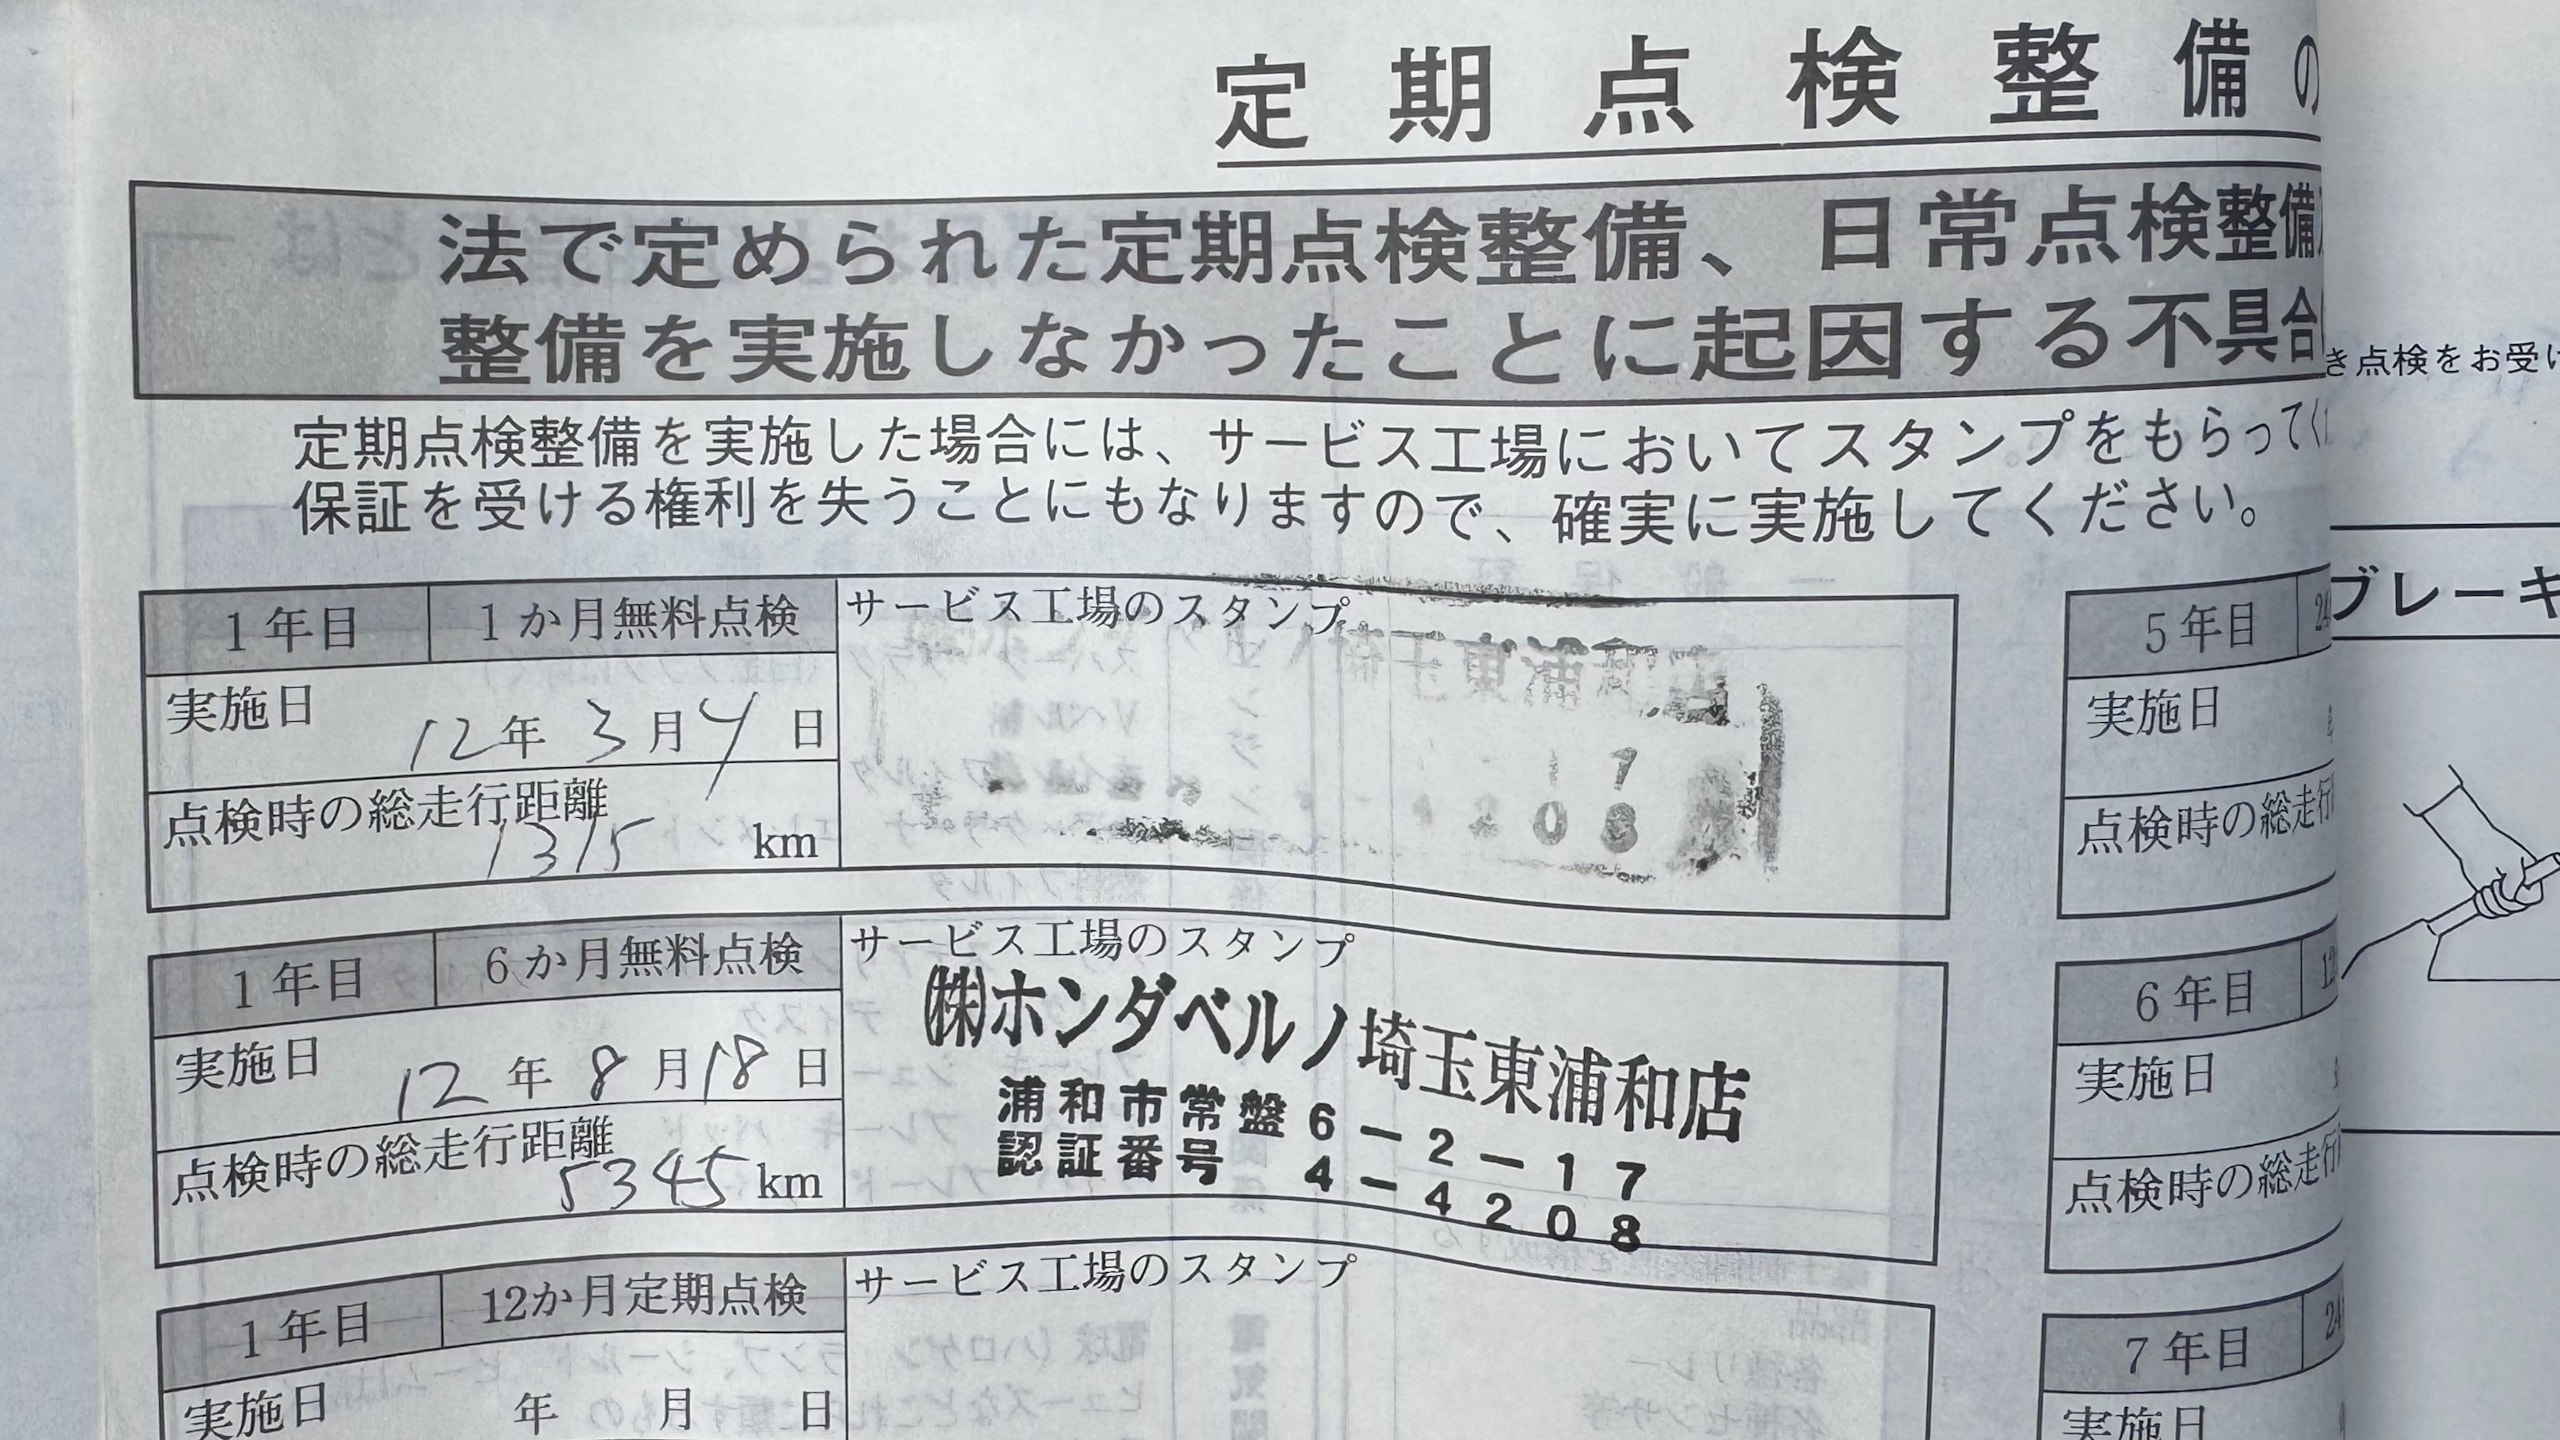 定期点検整備の
法で定められた定期点検整備、日常点検整備
整備を実施しなかったことに起因する不具合
定期点検整備を実施した場合には、サービス工場においてスタンプをもらってく
保証を受ける権利を失うことにもなりますので、確実に実施してください。
1年目 1か月無料点検 サービス工場のスタンプ
埼玉東浦和店
実施日 12年 3月 4日
17
点検時の総走行距離
1315 km
208
1年目 6か月無料点検 サービス工場のスタンプ
㈱ホンダベルノ埼玉東浦和店
実施日 12年 8月 18日
浦和市常盤6-2-17
認証番号 4-4208
点検時の総走行距離
5345 km
1年目 12か月定期点検 サービス工場のスタンプ
実施日 年 月 日
5年目
実施日
点検時の総走行
6年目
実施日
点検時の総走行
7年目 24
実施日
き点検をお受け
ブレーキ